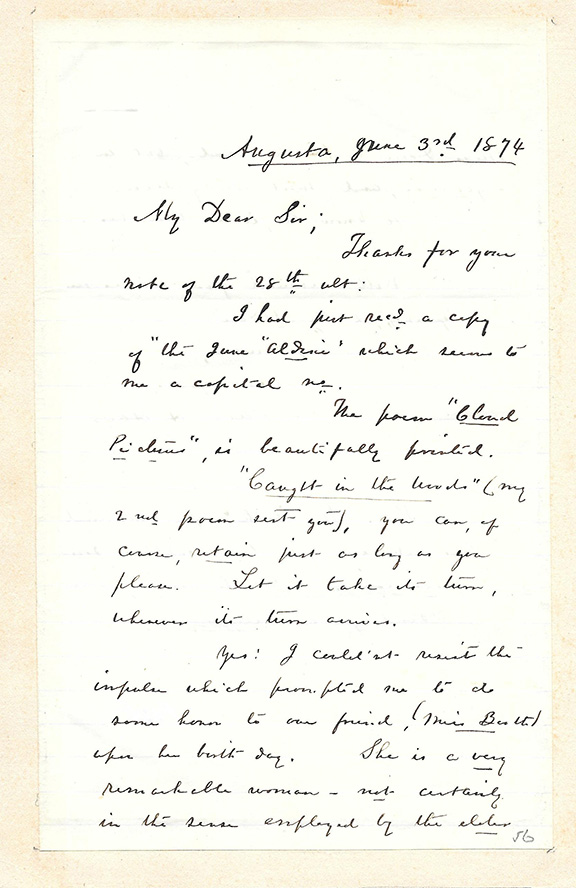 Augusta, June 3rd 1874
My Dear Sir;
Thanks for your
note of the 28th ult:
I had just recd a copy
of "the June "Aldine" which seems to
me a capital no.
The poem "Cloud
Pictures", is beautifully printed.
"Caught in the Woods" (my
2nd poem sent you), you can, of
course, retain just as long as you
please. Let it take its turn,
whenever its turn arrives.
Yes! I could'nt resist the
impulse which prompted me to do
some honor to our friend, (Miss Booth)
upon her birth day. She is a very
remarkable woman - not certainly
in the sense employed by the elder
56